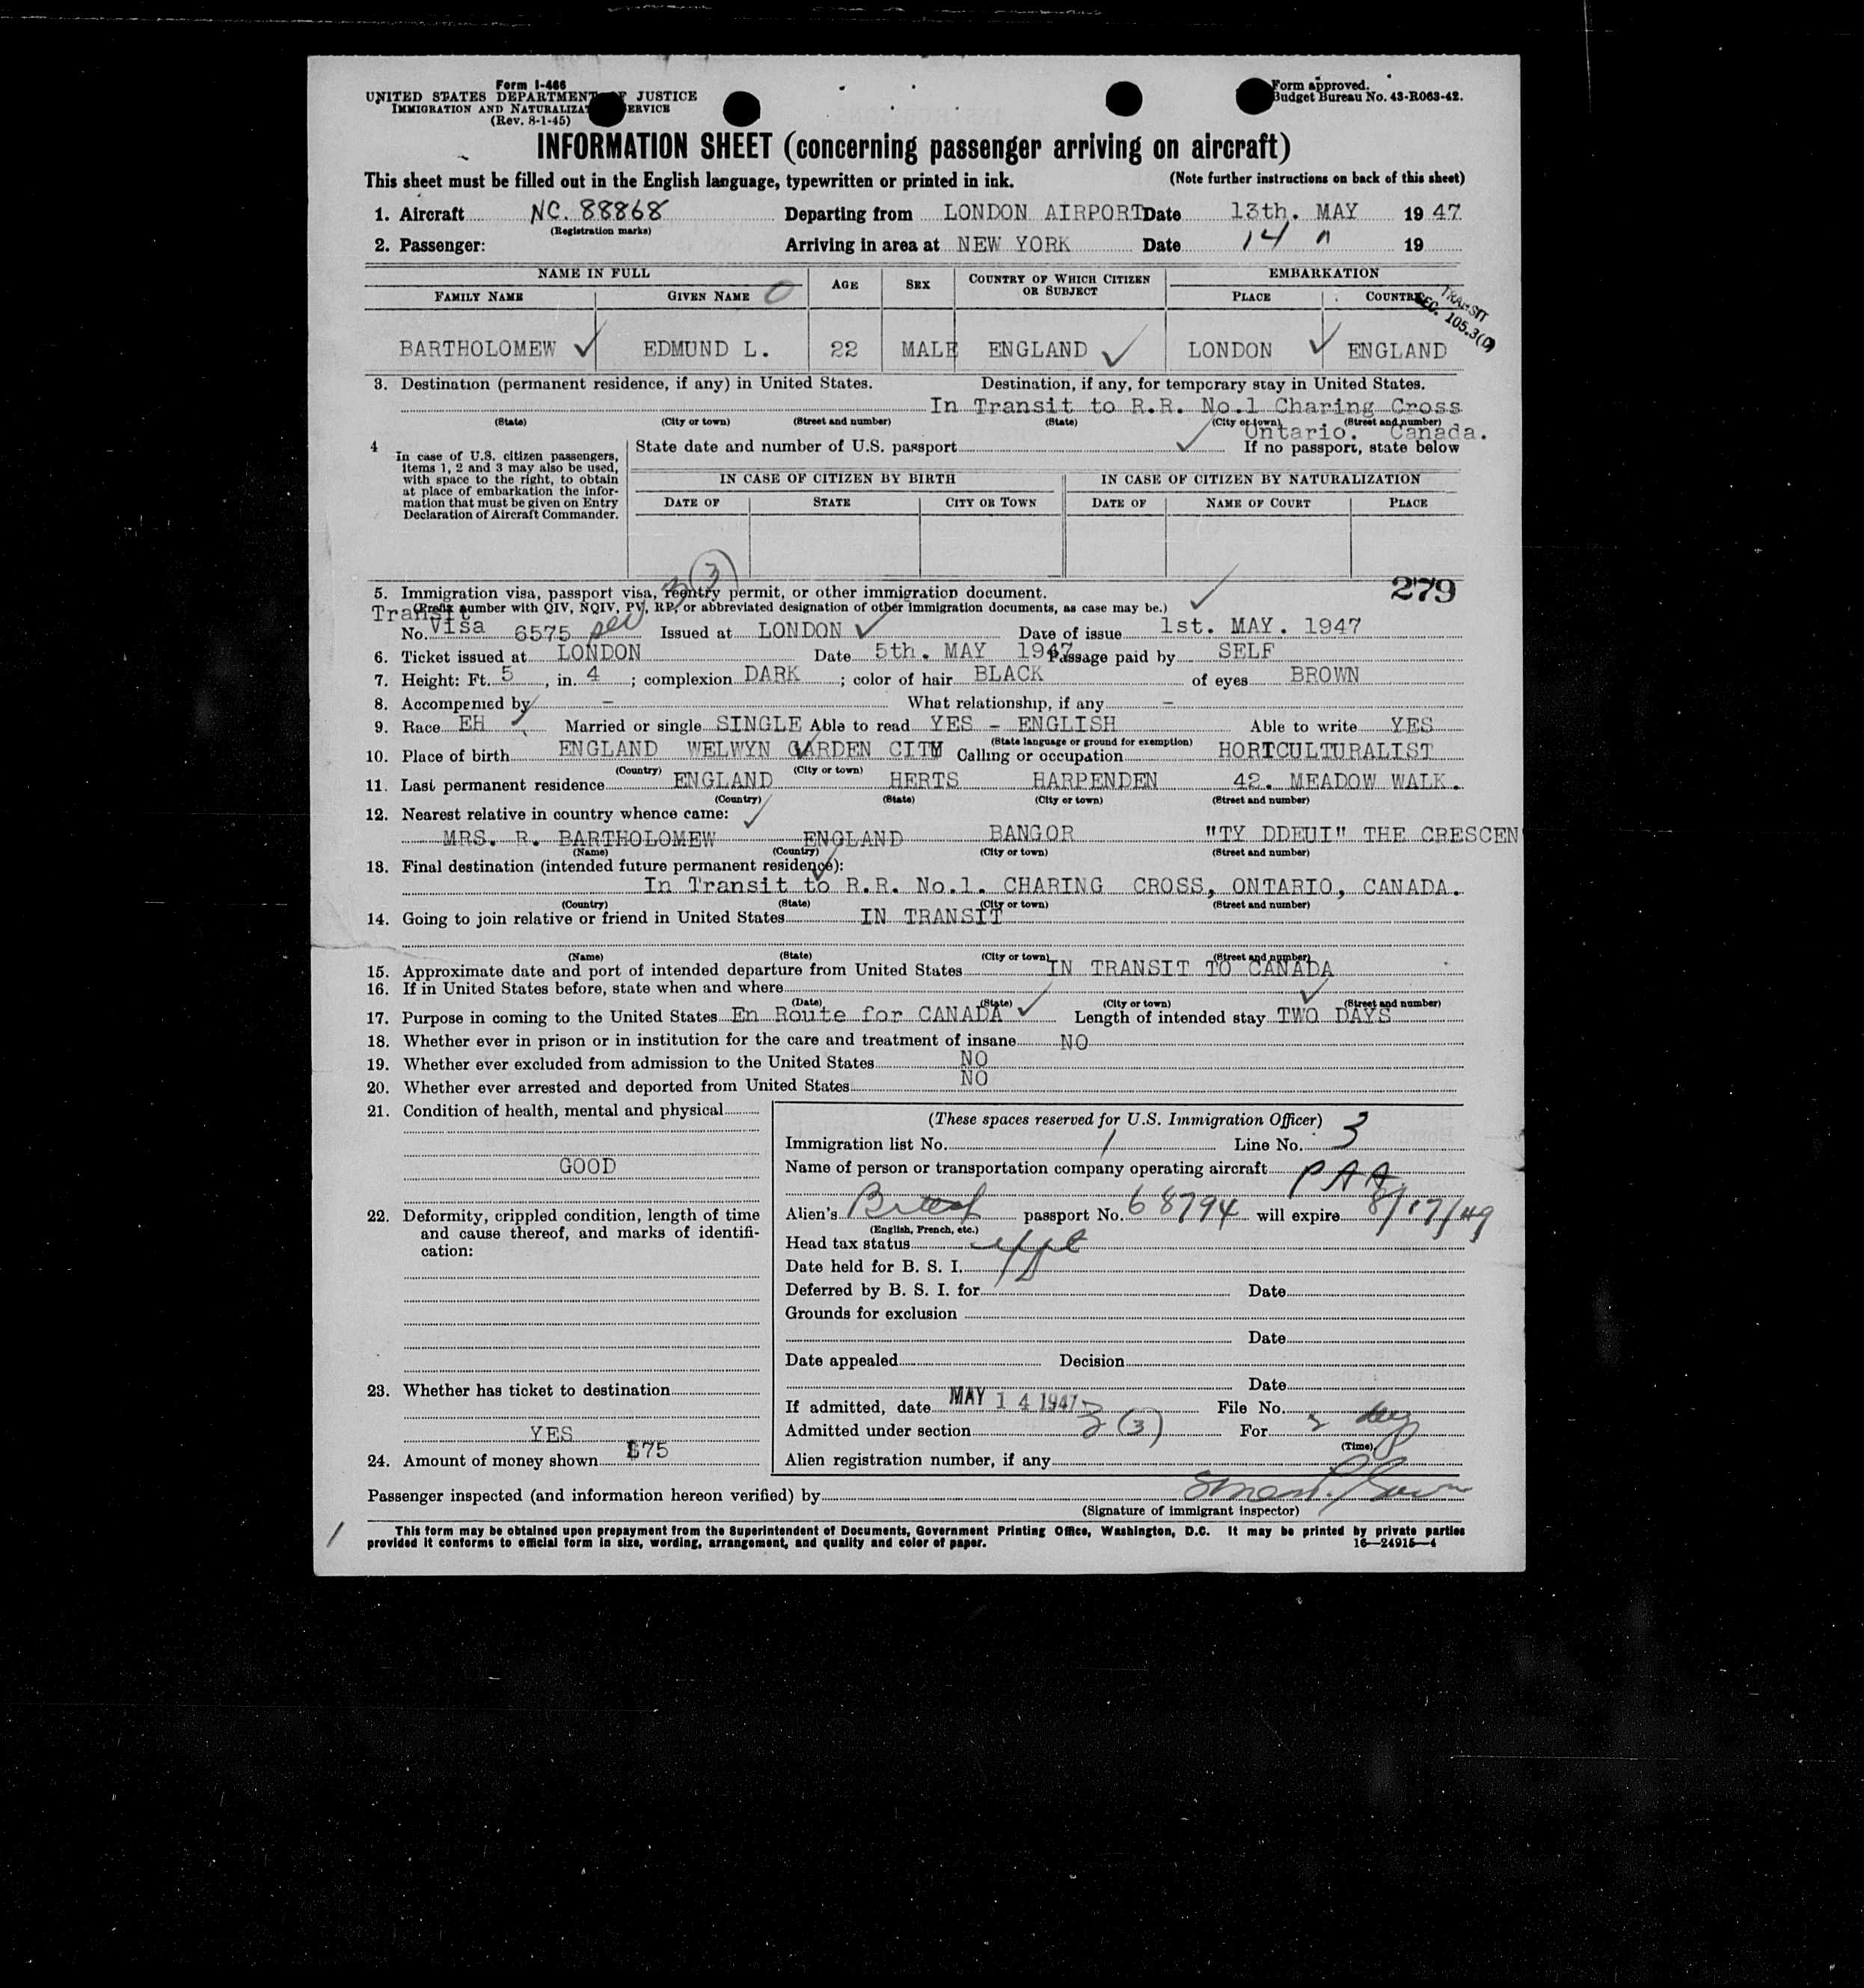 Form I-466
UNITED STATES DEPARTMENT OF JUSTICE
IMMIGRATION AND NATURALIZATION SERVICE
(Rev. 8-1-45)
Form approved.
Budget Bureau No. 43-R063-42.
INFORMATION SHEET (concerning passenger arriving on aircraft)
This sheet must be filled out in the English language, typewritten or printed in ink. (Note further instructions on back of this sheet)
1. Aircraft NC. 88868 Departing from LONDON AIRPORT Date 13th. MAY 19 47
(Registration marks)
2. Passenger: Arriving in area at NEW YORK Date 14 " 19
NAME IN FULL AGE SEX COUNTRY OF WHICH CITIZEN OR SUBJECT EMBARKATION
FAMILY NAME GIVEN NAME 0 PLACE COUNTRY
TRANSIT
SEC. 105.3(c)
BARTHOLOMEW EDMUND L. 22 MALE ENGLAND LONDON ENGLAND
3. Destination (permanent residence, if any) in United States. Destination, if any, for temporary stay in United States.
In Transit to R.R. No.1 Charing Cross
(State) (City or town) (Street and number) (State) (City or town) (Street and number)
Ontario. Canada.
4 In case of U.S. citizen passengers, items 1, 2 and 3 may also be used, with space to the right, to obtain at place of embarkation the information that must be given on Entry Declaration of Aircraft Commander.
State date and number of U.S. passport If no passport, state below
IN CASE OF CITIZEN BY BIRTH IN CASE OF CITIZEN BY NATURALIZATION
DATE OF STATE CITY OR TOWN DATE OF NAME OF COURT PLACE
3 (3)
279
5. Immigration visa, passport visa, reentry permit, or other immigration document.
(Prefix number with QIV, NQIV, PV, RP, or abbreviated designation of other immigration documents, as case may be.)
Transit
No. Visa 6575 Issued at LONDON Date of issue 1st. MAY. 1947
6. Ticket issued at LONDON Date 5th. MAY 1947 Passage paid by SELF
7. Height: Ft. 5, in. 4; complexion DARK; color of hair BLACK of eyes BROWN
8. Accompanied by - What relationship, if any -
9. Race EH Married or single SINGLE Able to read YES - ENGLISH Able to write YES
(State language or ground for exemption)
10. Place of birth ENGLAND WELWYN GARDEN CITY Calling or occupation HORTCULTURALIST
(Country) (City or town)
11. Last permanent residence ENGLAND HERTS HARPENDEN 42. MEADOW WALK.
(Country) (State) (City or town) (Street and number)
12. Nearest relative in country whence came:
MRS. R. BARTHOLOMEW ENGLAND BANGOR "TY DDEUI" THE CRESCEN
(Name) (Country) (City or town) (Street and number)
13. Final destination (intended future permanent residence):
In Transit to R.R. No.1. CHARING CROSS, ONTARIO, CANADA.
(Country) (State) (City or town) (Street and number)
14. Going to join relative or friend in United States IN TRANSIT
(Name) (State) (City or town) (Street and number)
15. Approximate date and port of intended departure from United States IN TRANSIT TO CANADA
16. If in United States before, state when and where
(Date) (State) (City or town) (Street and number)
17. Purpose in coming to the United States En Route for CANADA Length of intended stay TWO DAYS
18. Whether ever in prison or in institution for the care and treatment of insane NO
19. Whether ever excluded from admission to the United States NO
20. Whether ever arrested and deported from United States NO
21. Condition of health, mental and physical
GOOD
22. Deformity, crippled condition, length of time
and cause thereof, and marks of identifi-
cation:
23. Whether has ticket to destination
YES
24. Amount of money shown £75
(These spaces reserved for U.S. Immigration Officer)
Immigration list No. 1 Line No. 3
Name of person or transportation company operating aircraft PAA
Alien's British passport No. 68794 will expire 8/17/49
(English, French, etc.)
Head tax status
Date held for B. S. I.
Deferred by B. S. I. for Date
Grounds for exclusion
Date
Date appealed Decision
Date
If admitted, date MAY 14 1947 File No.
Admitted under section 3 (3) For
(Time)
Alien registration number, if any
Passenger inspected (and information hereon verified) by
(Signature of immigrant inspector)
This form may be obtained upon prepayment from the Superintendent of Documents, Government Printing Office, Washington, D.C. It may be printed by private parties
provided it conforms to official form in size, wording, arrangement, and quality and color of paper. 16—24915—4